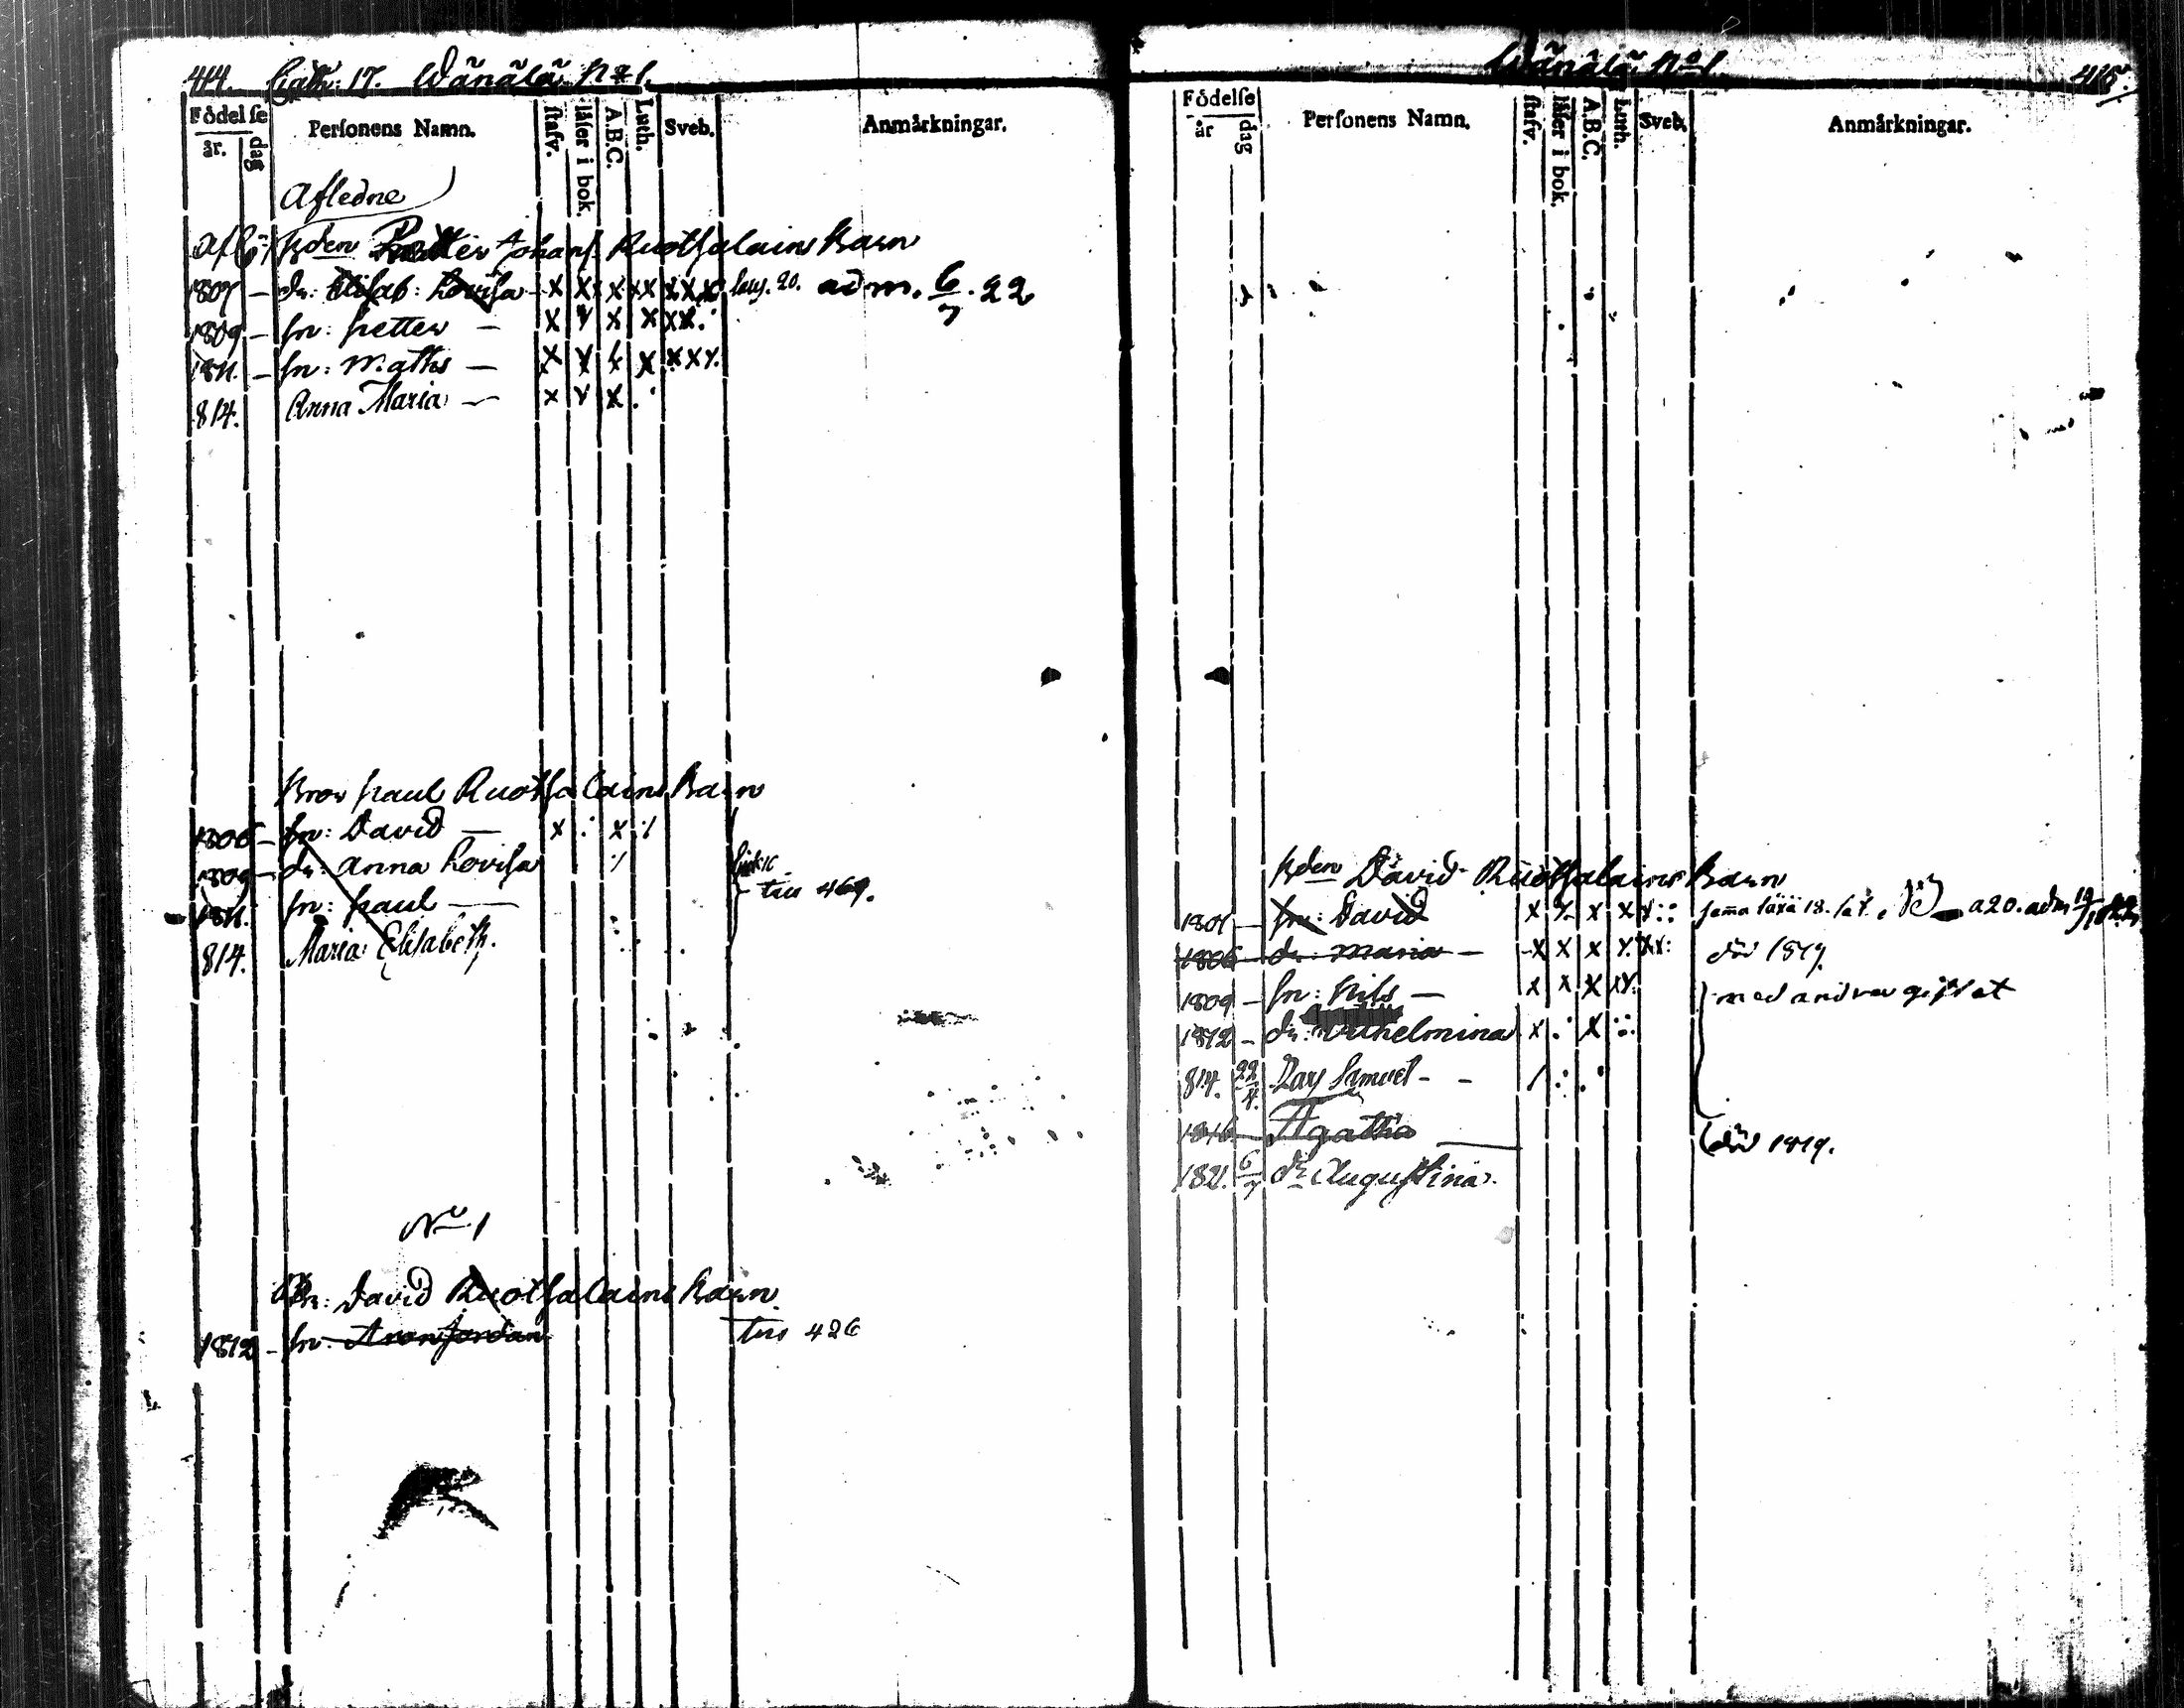 414. Wänälä No 1.
Födelse
år. dag
Personens Namn.
stafv.
läser i bok.
A.B.C.
Luth.
Sveb.
Anmärkningar.
Afledne
Johans Ruotsalains Barn
1807 – dr: Elisab: Lovisa – x x x xx xxx adm. 6/7. 22
1809 – sn: Petter – x x x x xx.
1811. – sn: Maths – x x x x xxx.
814. Anna Maria – x x x
Bror Paul Ruotsalains Barn
1806 – sn: David – x x
1809 – dr: Anna Lovisa
1811. sn: Paul – 469.
814. Maria Elisabeth.
No 1
David Ruotsalains Barn
1812 – sn: 426
Wänälä No 1
415.
Födelse
år dag
Personens Namn.
stafv.
läser i bok.
A.B.C.
Luth.
Sveb.
Anmärkningar.
David Ruotsalains Barn
1801 – sn: David x x x x a20. adm
1806 – dr: Maria – x x x x xx: död 1819
1809 – sn: Nils – x x x xx. med andra giftet
1812 – dr: Wilhelmina x x
814. 22/4. Samuel – –
1816 Agatha död 1819.
1821. 6/7 dr Augustina.